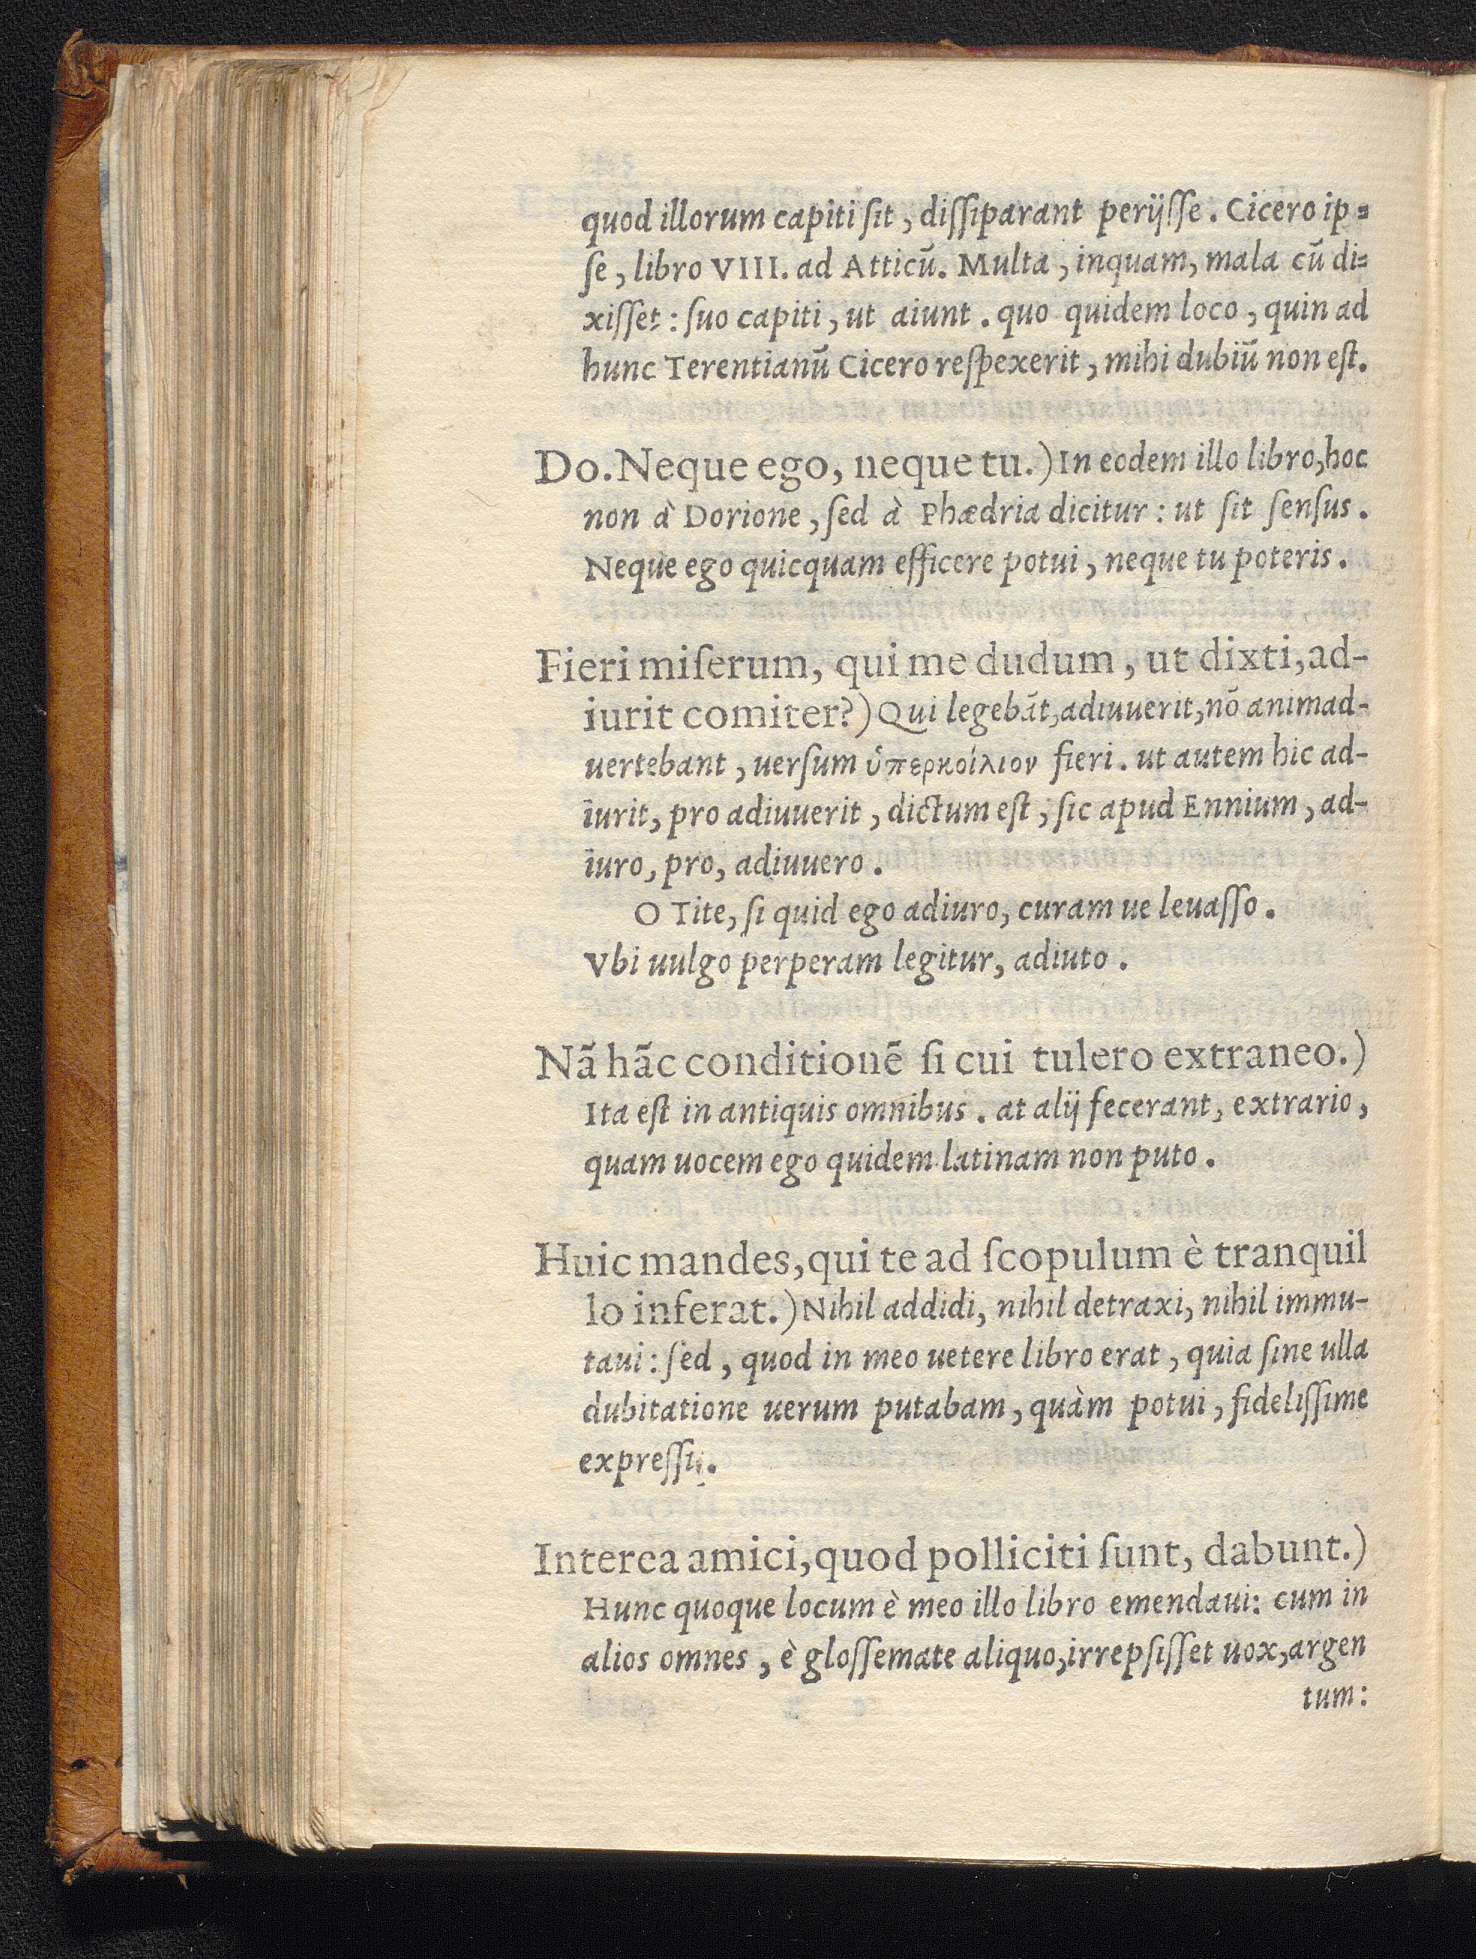 quod illorum capiti ſit, diſſiparant perijſſe. Cicero ip=
ſe, libro VIII. ad Atticū. Multa, inquam, mala cū di=
xiſſet: ſuo capiti, ut aiunt. quo quidem loco, quin ad
hunc Terentianū Cicero reſpexerit, mihi dubiū non eſt.
Do. Neque ego, neque tu.) In eodem illo libro, hoc
non à Dorione, ſed à Phædria dicitur: ut ſit ſenſus.
Neque ego quicquam efficere potui, neque tu poteris.
Fieri miſerum, qui me dudum, ut dixti, ad-
iurit comiter?) Qui legebāt, adiuuerit, nō animad-
uertebant, uerſum ὑπερκοίλιον fieri. ut autem hic ad-
iurit, pro adiuuerit, dictum eſt, ſic apud Ennium, ad-
iuro, pro, adiuuero.
O Tite, ſi quid ego adiuro, curam ue leuaſſo.
Vbi uulgo perperam legitur, adiuto.
Nā hāc conditionē ſi cui tulero extraneo.)
Ita eſt in antiquis omnibus. at alij fecerant, extrario,
quam uocem ego quidem latinam non puto.
Huic mandes, qui te ad ſcopulum è tranquil
lo inferat.) Nihil addidi, nihil detraxi, nihil immu-
taui: ſed, quod in meo uetere libro erat, quia ſine ulla
dubitatione uerum putabam, quàm potui, fideliſſime
expreſſi.
Interea amici, quod polliciti ſunt, dabunt.)
Hunc quoque locum è meo illo libro emendaui: cum in
alios omnes, è gloſſemate aliquo, irrepſiſſet uox, argen
tum: